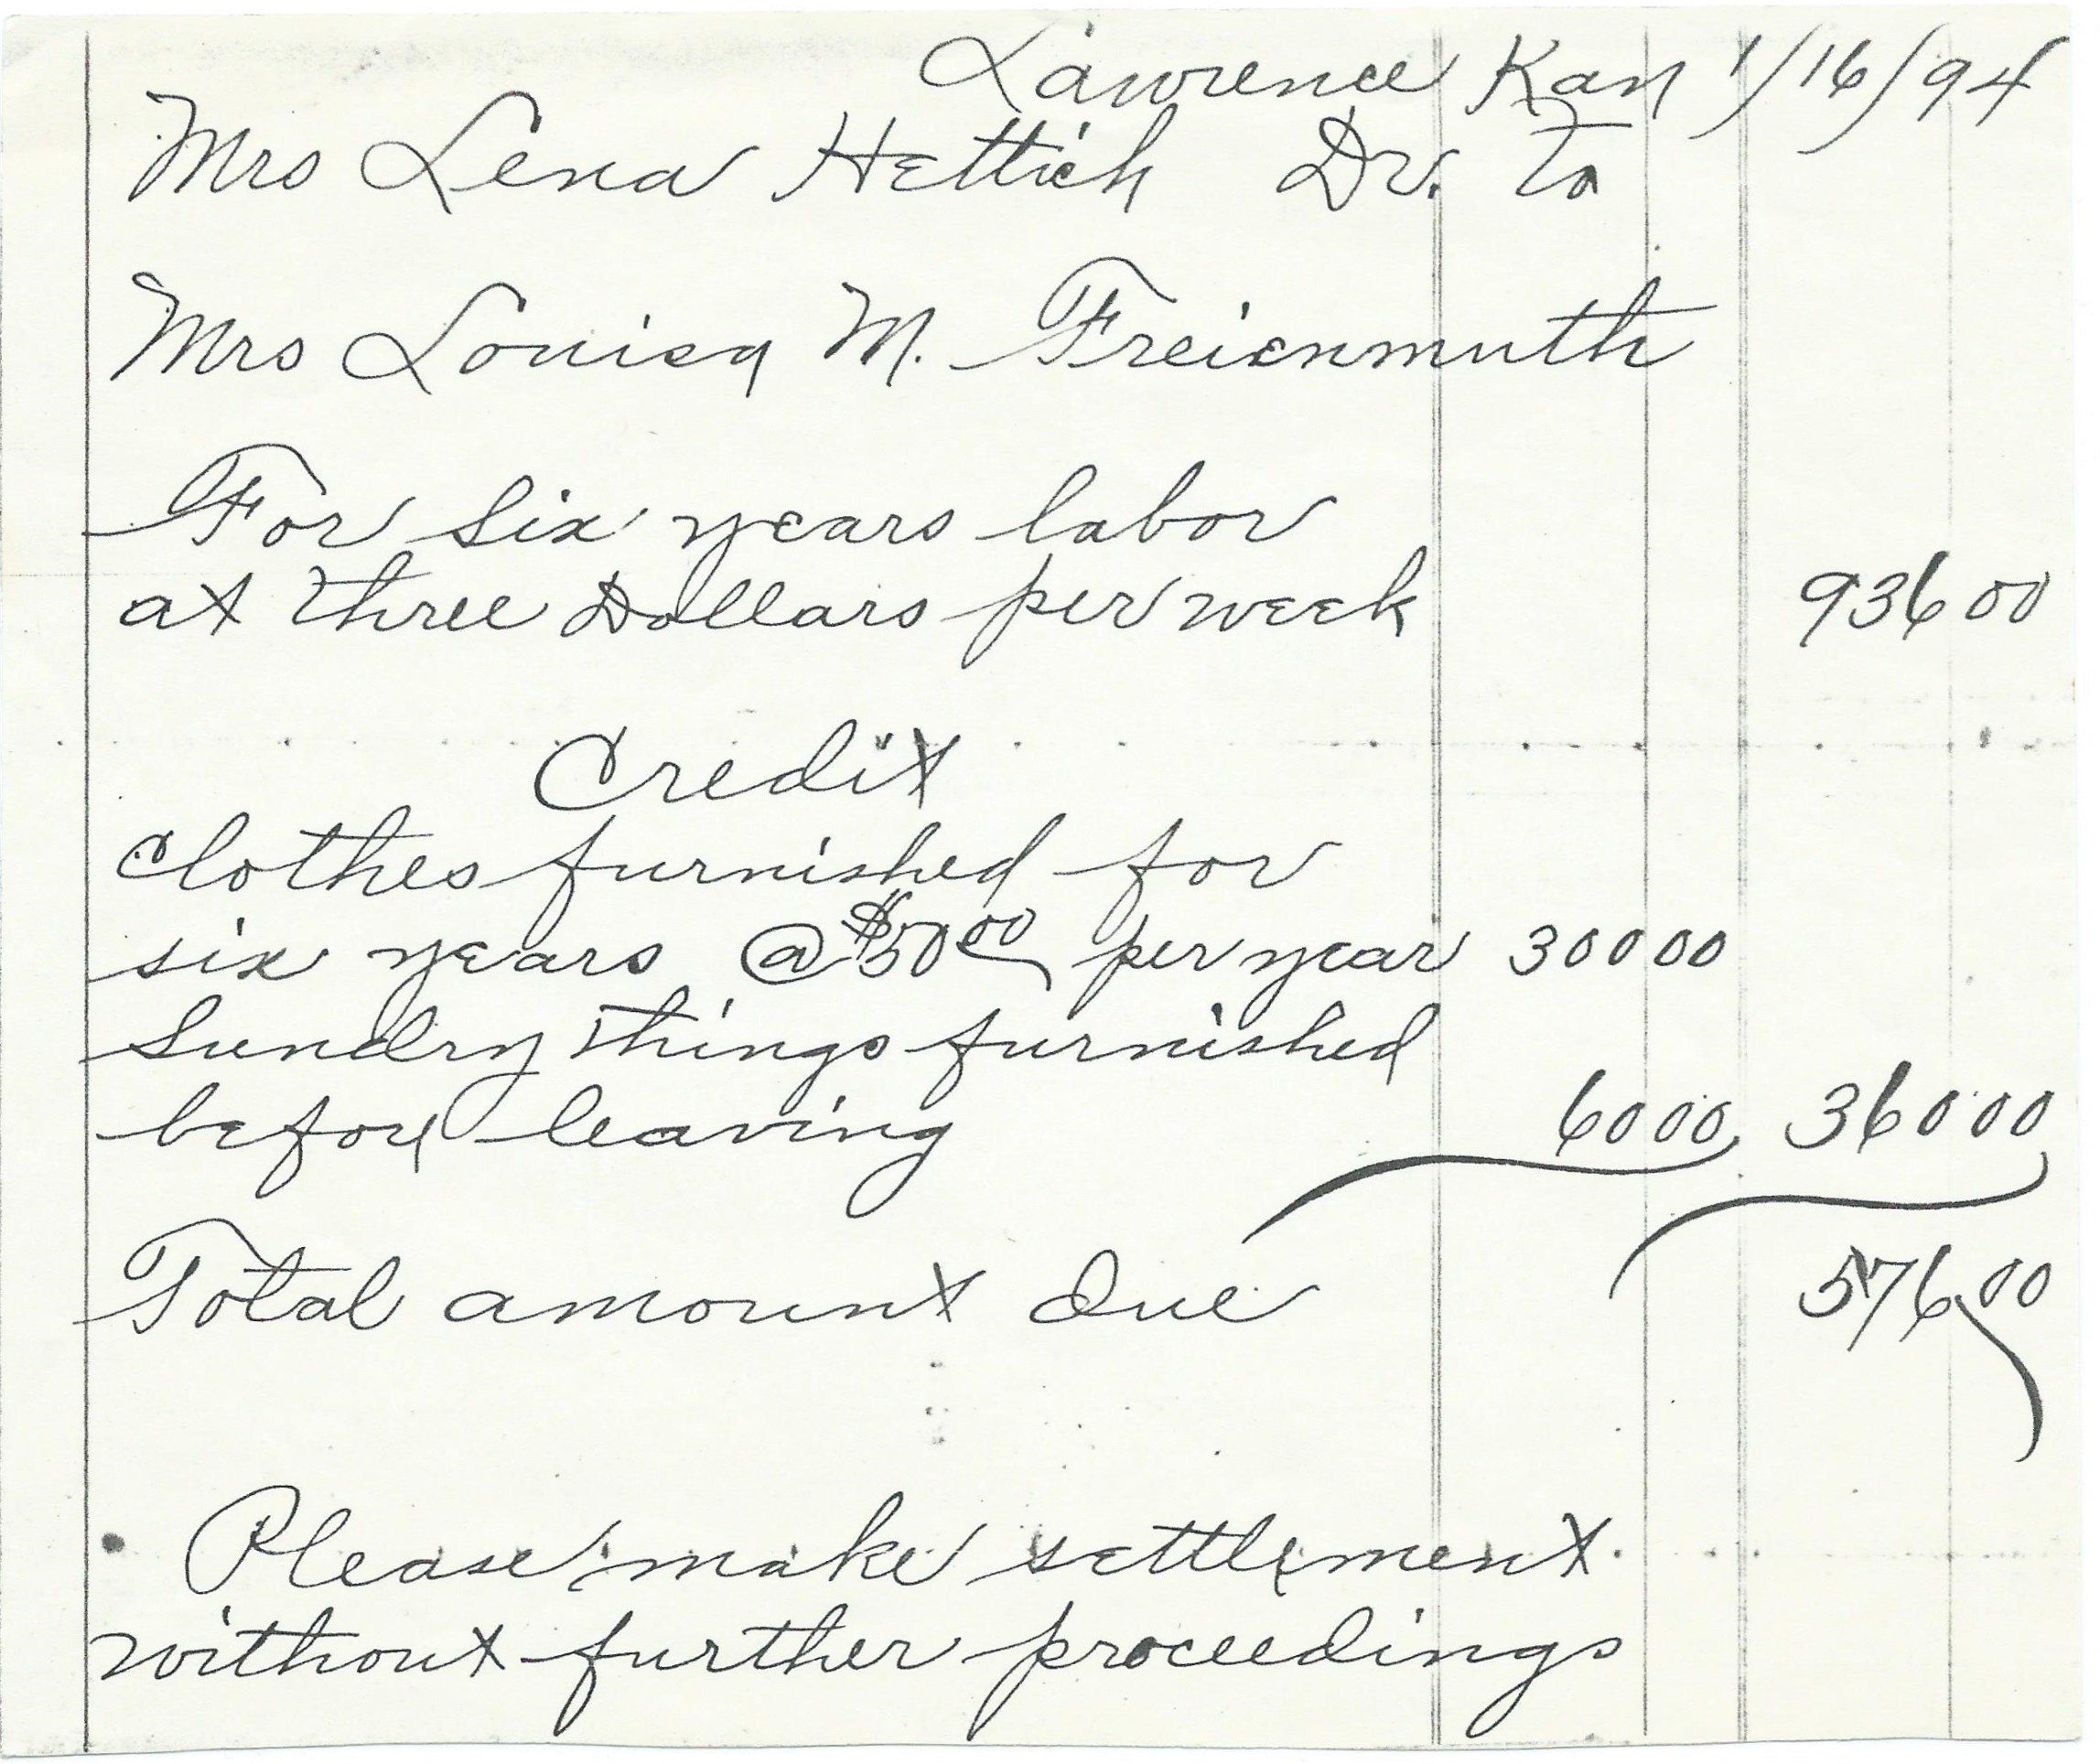 Lawrence Kan 1/16/94
Mrs Lena Hettich Dr. To
Mrs Louisa M. Freienmuth
For Six years labor
at three Dollars per week 936 00
Credit
Clothes furnished for
six years @ $50 00 per year 300 00
Sundry things furnished
before leaving 60 00 360 00
Total amount due 576 00
Please make settlement
without further proceedings